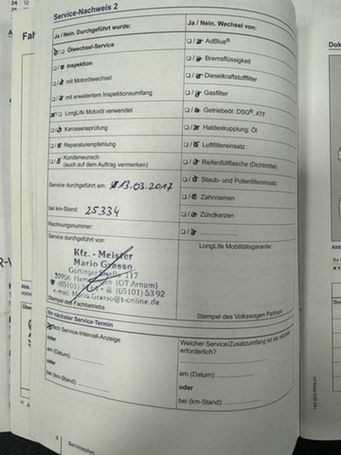 Service-Nachweis 2
Ja / Nein. Durchgeführt wurde:
Ölwechsel-Service
Inspektion
mit Motorölwechsel
mit erweitertem Inspektionsumfang
LongLife Motoröl verwendet
Karosserieprüfung
Reparaturempfehlung
Kundenwunsch
(auch auf dem Auftrag vermerken)
Service durchgeführt am: 13.03.2017
bei km-Stand: 25334
Rechnungsnummer:
Service durchgeführt von:
Kfz. - Meister
Mario Grasso
Göttinger Straße 117
30966 (OT Arnum)
(05101) 5392
e-mail: Mario.Grasso@t-online.de
Stempel des Fachbetriebs
Ja / Nein. Wechsel von:
AdBlue®
Bremsflüssigkeit
Dieselkraftstofffilter
Gasfilter
Getriebeöl: DSG®, ATF
Haldexkupplung: Öl
Luftfiltereinsatz
Reifenfüllflasche (Dichtmittel)
Staub- und Pollenfiltereinsatz
Zahnriemen
Zündkerzen
LongLife Mobilitätsgarantie
Stempel des Volkswagen Partners
Ihr nächster Service-Termin
nach Service-Intervall-Anzeige
oder
am (Datum):
oder
bei (km-Stand):
Welcher Service/Zusatzumfang ist als nächster
erforderlich?
am (Datum):
oder
bei (km-Stand):
8 Serviceplan